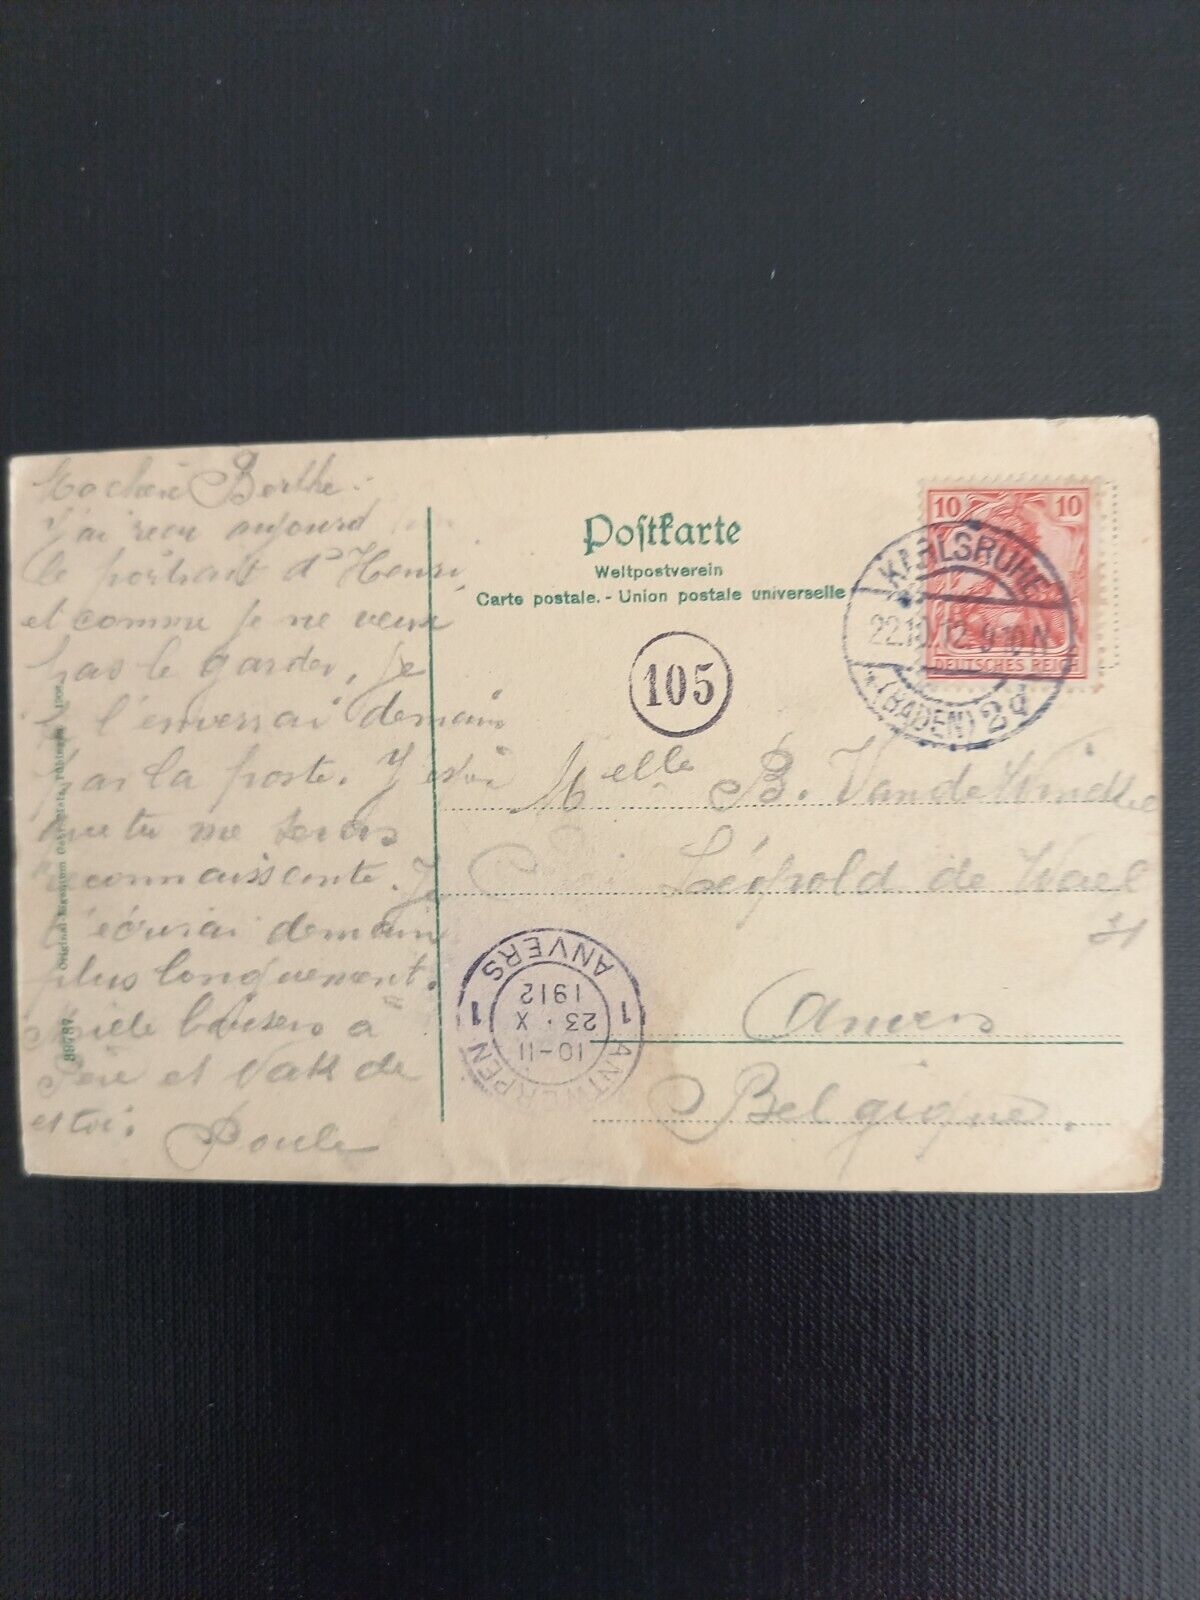 Ma chère Berthe.
J'ai reçu aujourd
le portrait d'Henri,
et comme je ne veux
pas le garder, je
l'enverrai demain
par la poste.
que tu me seras
reconnaissante. Je
t'écrirai demain
plus longuement.
Mille baisers à
Père et
et toi.
89787
Postkarte
Weltpostverein
Carte postale. - Union postale universelle
105
10 10
DEUTSCHES REICH
KARLSRUHE
22.10.12. 9-10 N
*(BADEN) 2d
Melle B. Van de
Léopold de Wael
Anvers
Belgique.
1 ANTWERPEN 1
10-11
23 · X
1912
ANVERS